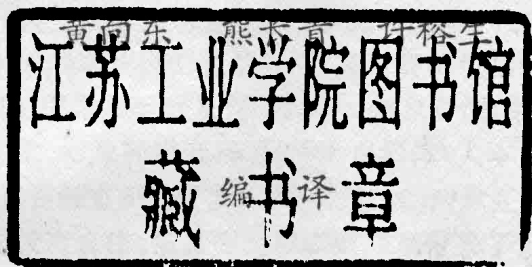 黄向东 熊长青 许榕生
江苏工业学院图书馆
藏书章
编译